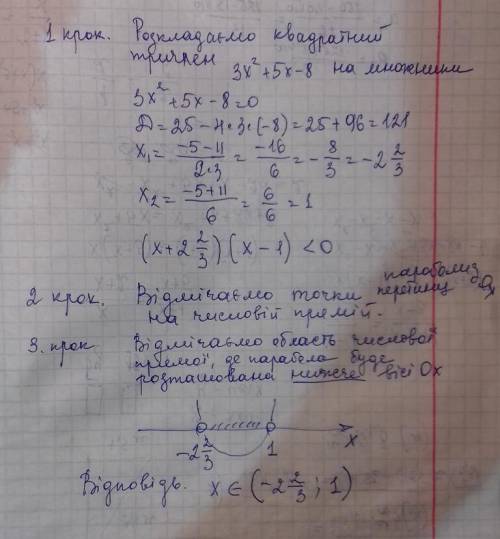 1 крок. Розкладаємо квадратний
тричлен 3x² + 5x - 8 на множники
3x² + 5x - 8 = 0
D = 25 - 4·3·(-8) = 25 + 96 = 121
x₁ = (-5-11)/(2·3) = -16/6 = -8/3 = -2 2/3
x₂ = (-5+11)/6 = 6/6 = 1
(x + 2 2/3)(x - 1) < 0
2 крок. Відмічаємо точки перетину параболи з Ox
на числовій прямій.
3. крок Відмічаємо область числової
прямої, де парабола буде
розташована нижче вісі Ox
-2 2/3 1 x
Відповідь. x ∈ (-2 2/3; 1)